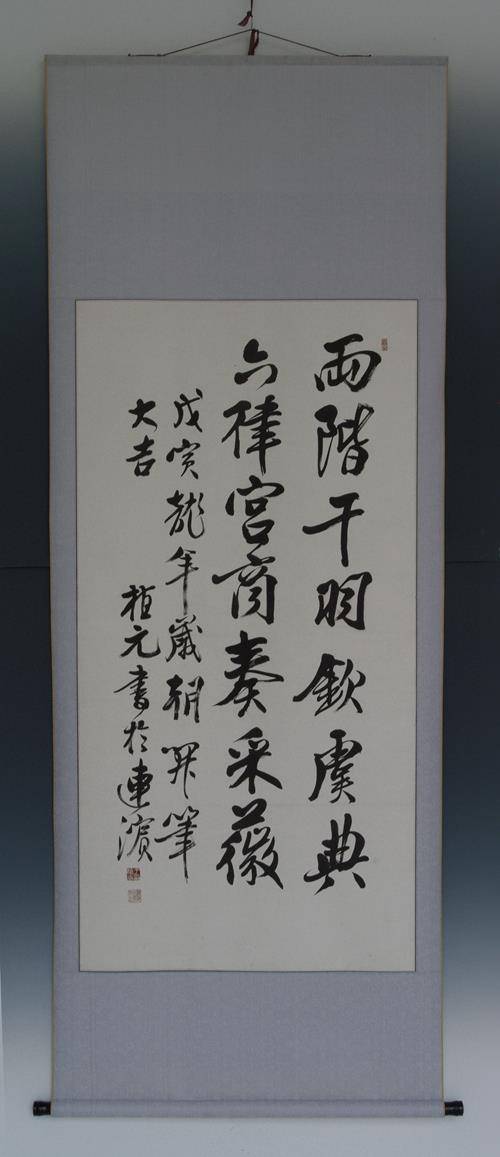 兩階干羽欽虞典
六律宮商奏采薇
戊寅年歲朝開筆
大吉 植元書於連濱